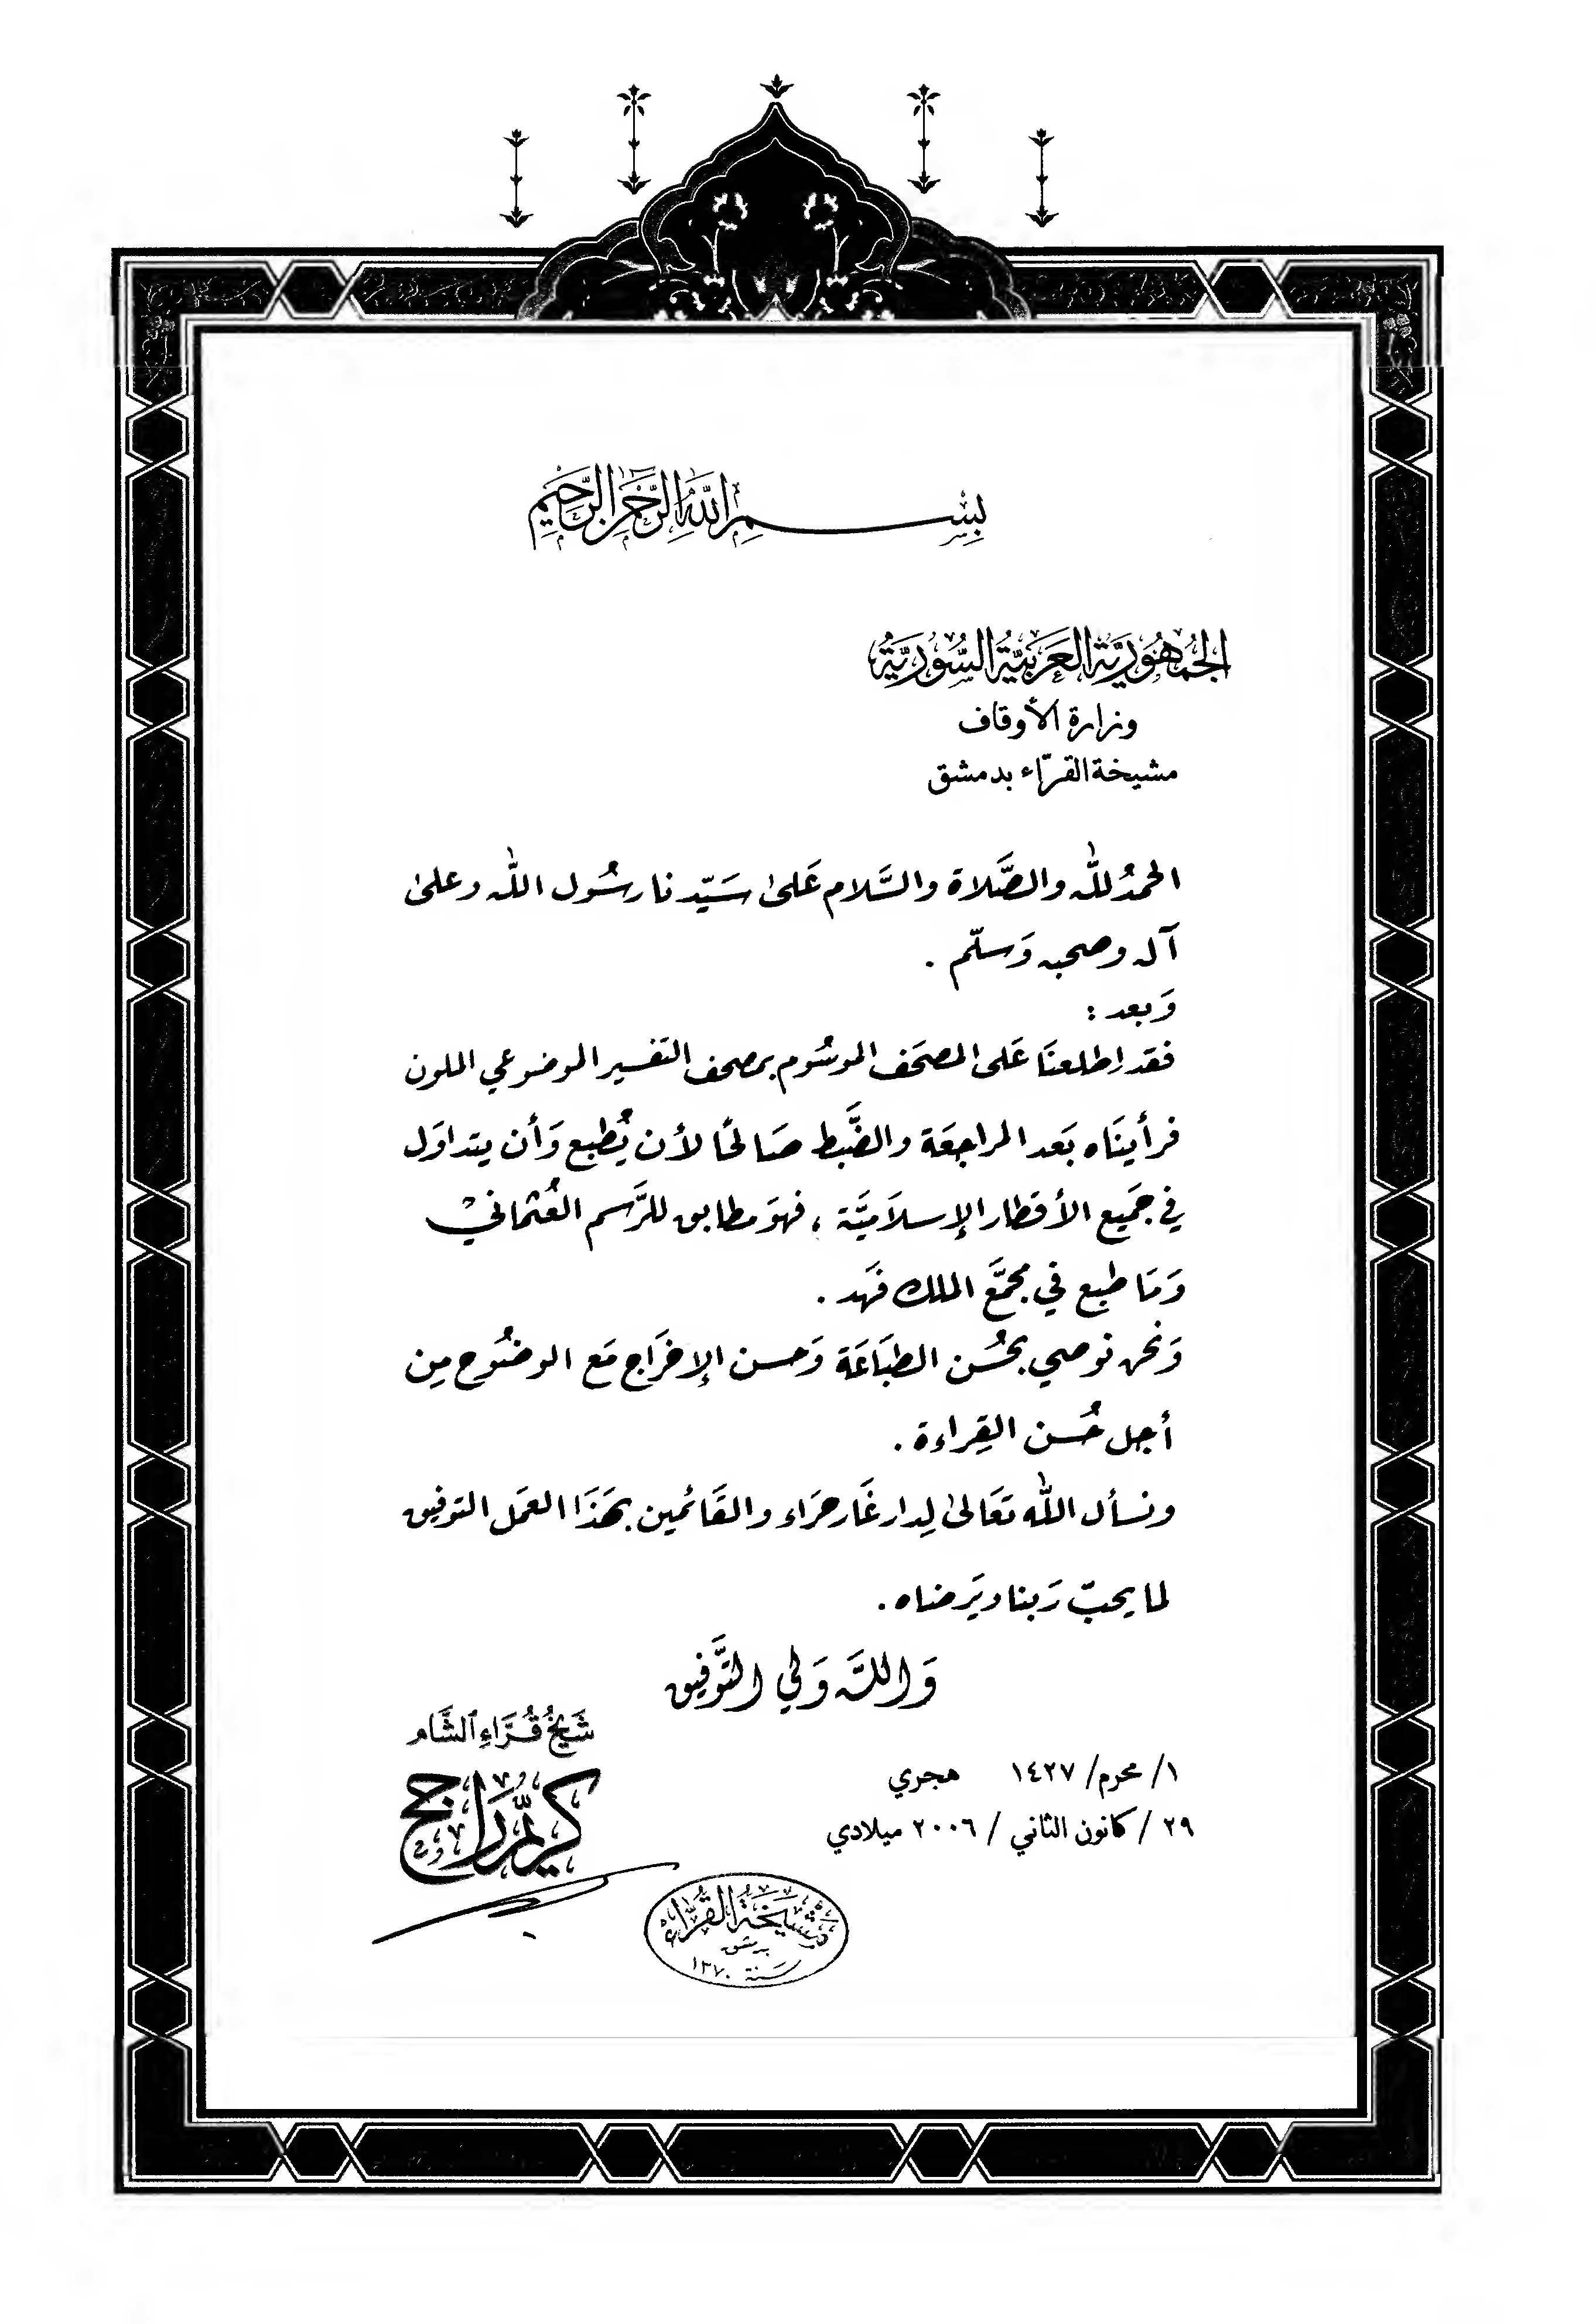 بِسْمِ اللهِ الرَّحْمٰنِ الرَّحِيمِ
الجُمْهُورِيَّة العَرَبيَّة السُّورِيَّة
وزارة الأوقاف
مشيخة القرّاء بدمشق
الحمدُ لله والصَّلاة والسَّلام عَلىٰ سَيّدنا رسُول الله وعلىٰ
آله وصحبه وَسلّم .
وَبعد :
فقد اِطلعنَا عَلى المصحَف الموسُوم بمصحف التفسير الموضوعي الملون
فرأينَاه بَعد المراجعَة والضَّبط صَالحًا لأن يُطبع وَأن يتداوَل
في جَميع الأقطار الإسلاَميَّة ، فهوَ مطابق للرَّسم العُثماني
وَمَا طبع في مجمَّع الملك فَهَد .
وَنحن نوصي بحُسْن الطبَاعَة وَحسن الإخرَاج مَع الوضُوح مِن
أجل حُسن القِراءة .
ونسأل الله تعَالىٰ لِدار غَار حرَاء والقَائمين بهَذَا العمَل التوفيق
لما يحبّ رَبنا ويَرضاه .
وَاللَّه وَلي التَّوفيق
شَيْخُ قُرَّاءِ الشَّام
كريّم راجح
١/ محرم/ ١٤٢٧ هجري
٢٩ / كانون الثاني / ٢٠٠٦ ميلادي
مَشْيَخَةُ القُرَّاءِ
بدمشق
سَنة ١٣٧٠